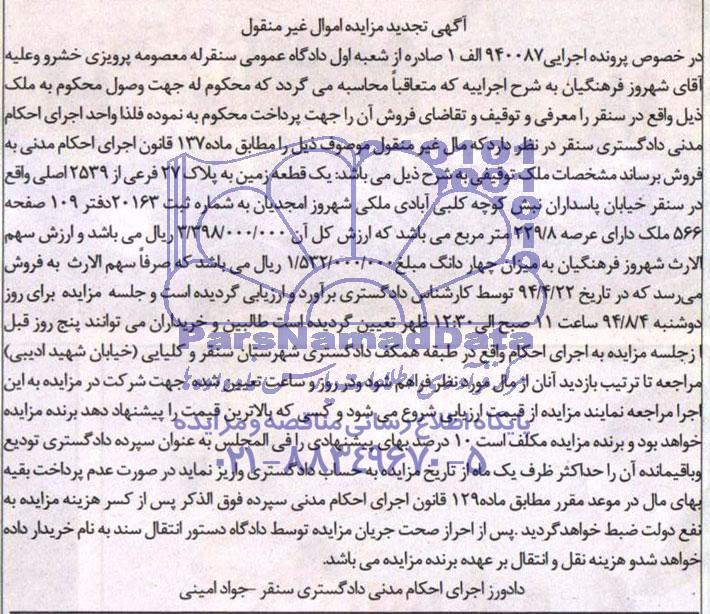 آگهی تجدید مزایده اموال غیر منقول
در خصوص پرونده اجرایی۹۴۰۰۸۷ الف ۱ صادره از شعبه اول دادگاه عمومی سنقرله معصومه پرویزی خشرو وعلیه
آقای شهروز فرهنگیان به شرح اجراییه که متعاقباً محاسبه می گردد که محکوم له جهت وصول محکوم به ملک
ذیل واقع در سنقر را معرفی و توقیف و تقاضای فروش آن را جهت پرداخت محکوم به نموده فلذا واحد اجرای احکام
مدنی دادگستری سنقر در نظر دارد که مال غیر منقول موصوف ذیل را مطابق ماده۱۳۷ قانون اجرای احکام مدنی به
فروش برساند مشخصات ملک توقیفی به شرح ذیل می باشد: یک قطعه زمین به پلاک ۲۷ فرعی از ۲۵۳۹ اصلی واقع
در سنقر خیابان پاسداران نبش کوچه کلبی آبادی ملکی شهروز امجدیان به شماره ثبت ۲۰۱۶۳دفتر ۱۰۹ صفحه
۵۶۶ ملک دارای عرصه ۲۲۹/۸ متر مربع می باشد که ارزش کل آن ۳/۳۹۸/۰۰۰/۰۰۰ ریال می باشد و ارزش سهم
الارث شهروز فرهنگیان به میزان چهار دانگ مبلغ ۱/۵۳۲/۰۰۰/۰۰۰ ریال می باشد که صرفاً سهم الارث به فروش
می‌رسد که در تاریخ ۹۴/۴/۲۲ توسط کارشناس دادگستری برآورد و ارزیابی گردیده است و جلسه مزایده برای روز
دوشنبه ۹۴/۸/۴ ساعت ۱۱ صبح الی ۱۲:۳۰ ظهر تعیین گردیده است طالبین و خریداران می توانند پنج روز قبل
ا زجلسه مزایده به اجرای احکام واقع در طبقه همکف دادگستری شهرستان سنقر و کلیایی (خیابان شهید ادیبی)
مراجعه تا ترتیب بازدید آنان از مال مورد نظر فراهم شود ودر روز و ساعت تعیین شده جهت شرکت در مزایده به این
اجرا مراجعه نمایند مزایده از قیمت ارزیابی شروع می شود و کسی که بالاترین قیمت را پیشنهاد دهد برنده مزایده
خواهد بود و برنده مزایده مکلف است ۱۰ درصد بهای پیشنهادی را فی المجلس به عنوان سپرده دادگستری تودیع
وباقیمانده آن را حداکثر ظرف یک ماه از تاریخ مزایده به حساب دادگستری واریز نماید در صورت عدم پرداخت بقیه
بهای مال در موعد مقرر مطابق ماده۱۲۹ قانون اجرای احکام مدنی سپرده فوق الذکر پس از کسر هزینه مزایده به
نفع دولت ضبط خواهدگردید .پس از احراز صحت جریان مزایده توسط دادگاه دستور انتقال سند به نام خریدار داده
خواهد شدو هزینه نقل و انتقال بر عهده برنده مزایده می باشد.
دادورز اجرای احکام مدنی دادگستری سنقر -جواد امینی
ParsNamadData
پایگاه اطلاع رسانی مناقصه و مزایده
۰۲۱-۸۸۳۴۹۶۷۰-۵